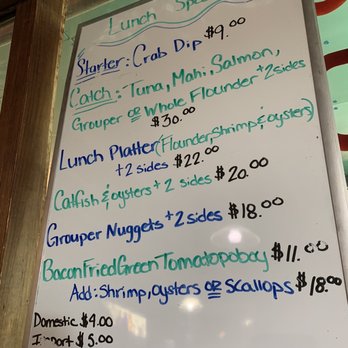 Lunch Spe
Starter: Crab Dip $9.00
Catch: Tuna, Mahi, Salmon,
Grouper or Whole Flounder +2 sides
$30.00
Lunch Platter (Flounder, shrimp & oysters)
+2 sides $22.00
Catfish & oysters + 2 sides $20.00
Grouper Nuggets +2 sides $18.00
Bacon Fried Green Tomato poboy $11.00
Add: Shrimp, oysters or Scallops $18.00
Domestic $4.00
Import $5.00